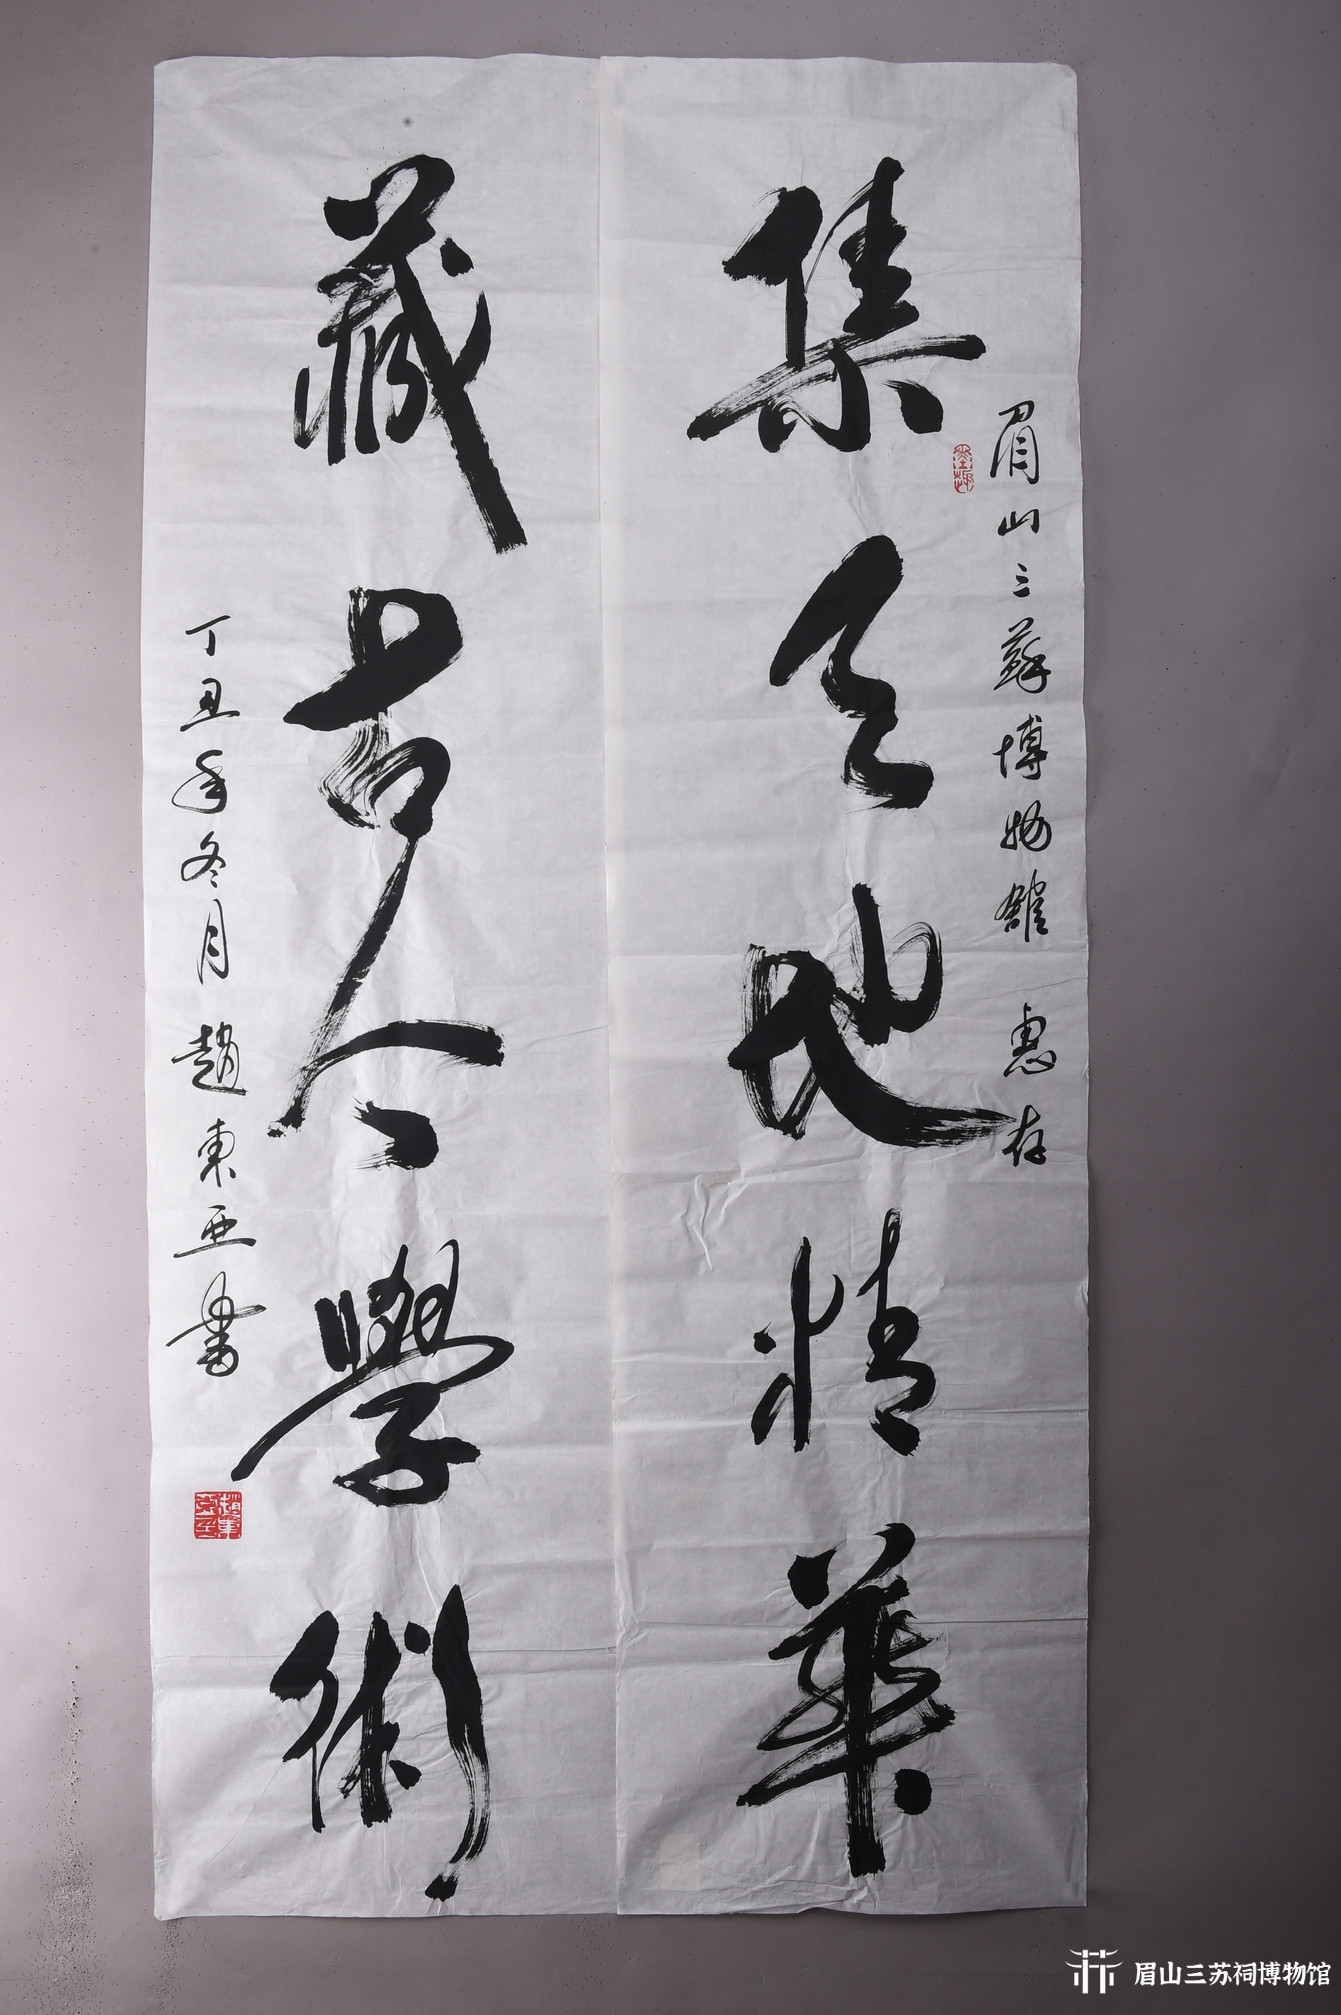 眉山三蘇博物館 惠存
集天地精華
藏古今學術
丁丑年冬月 趙東亚書
眉山三苏祠博物馆